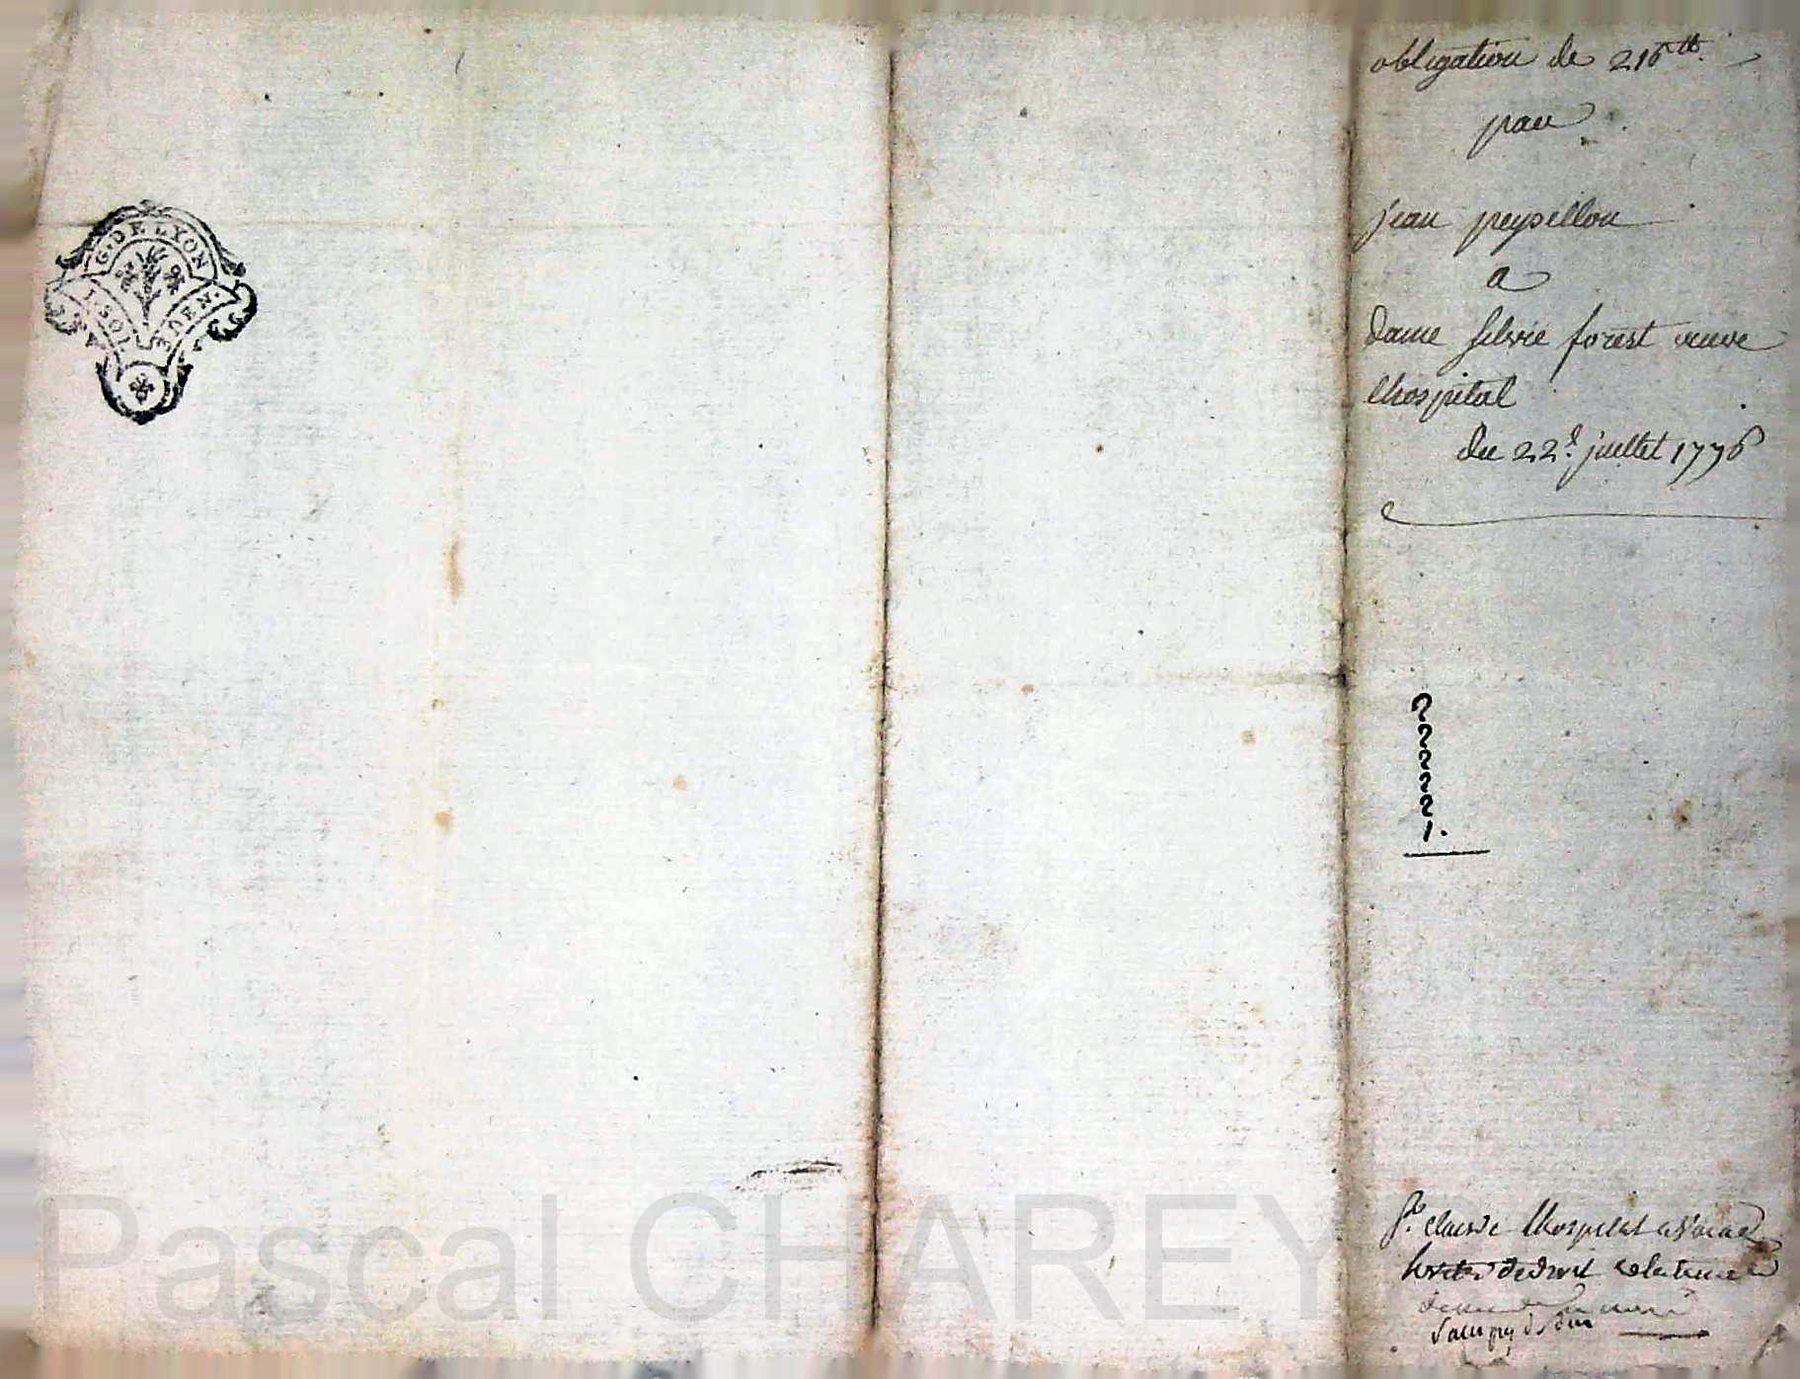 G. DE LYON
1 SOL
obligation de 216 ₶.
par
jean peysellon
a
dame silvie forest veuve
lhospital
du 22.e juillet 1776
2
2
2
2
2
1.
claude lhospital
Pascal CHAREY